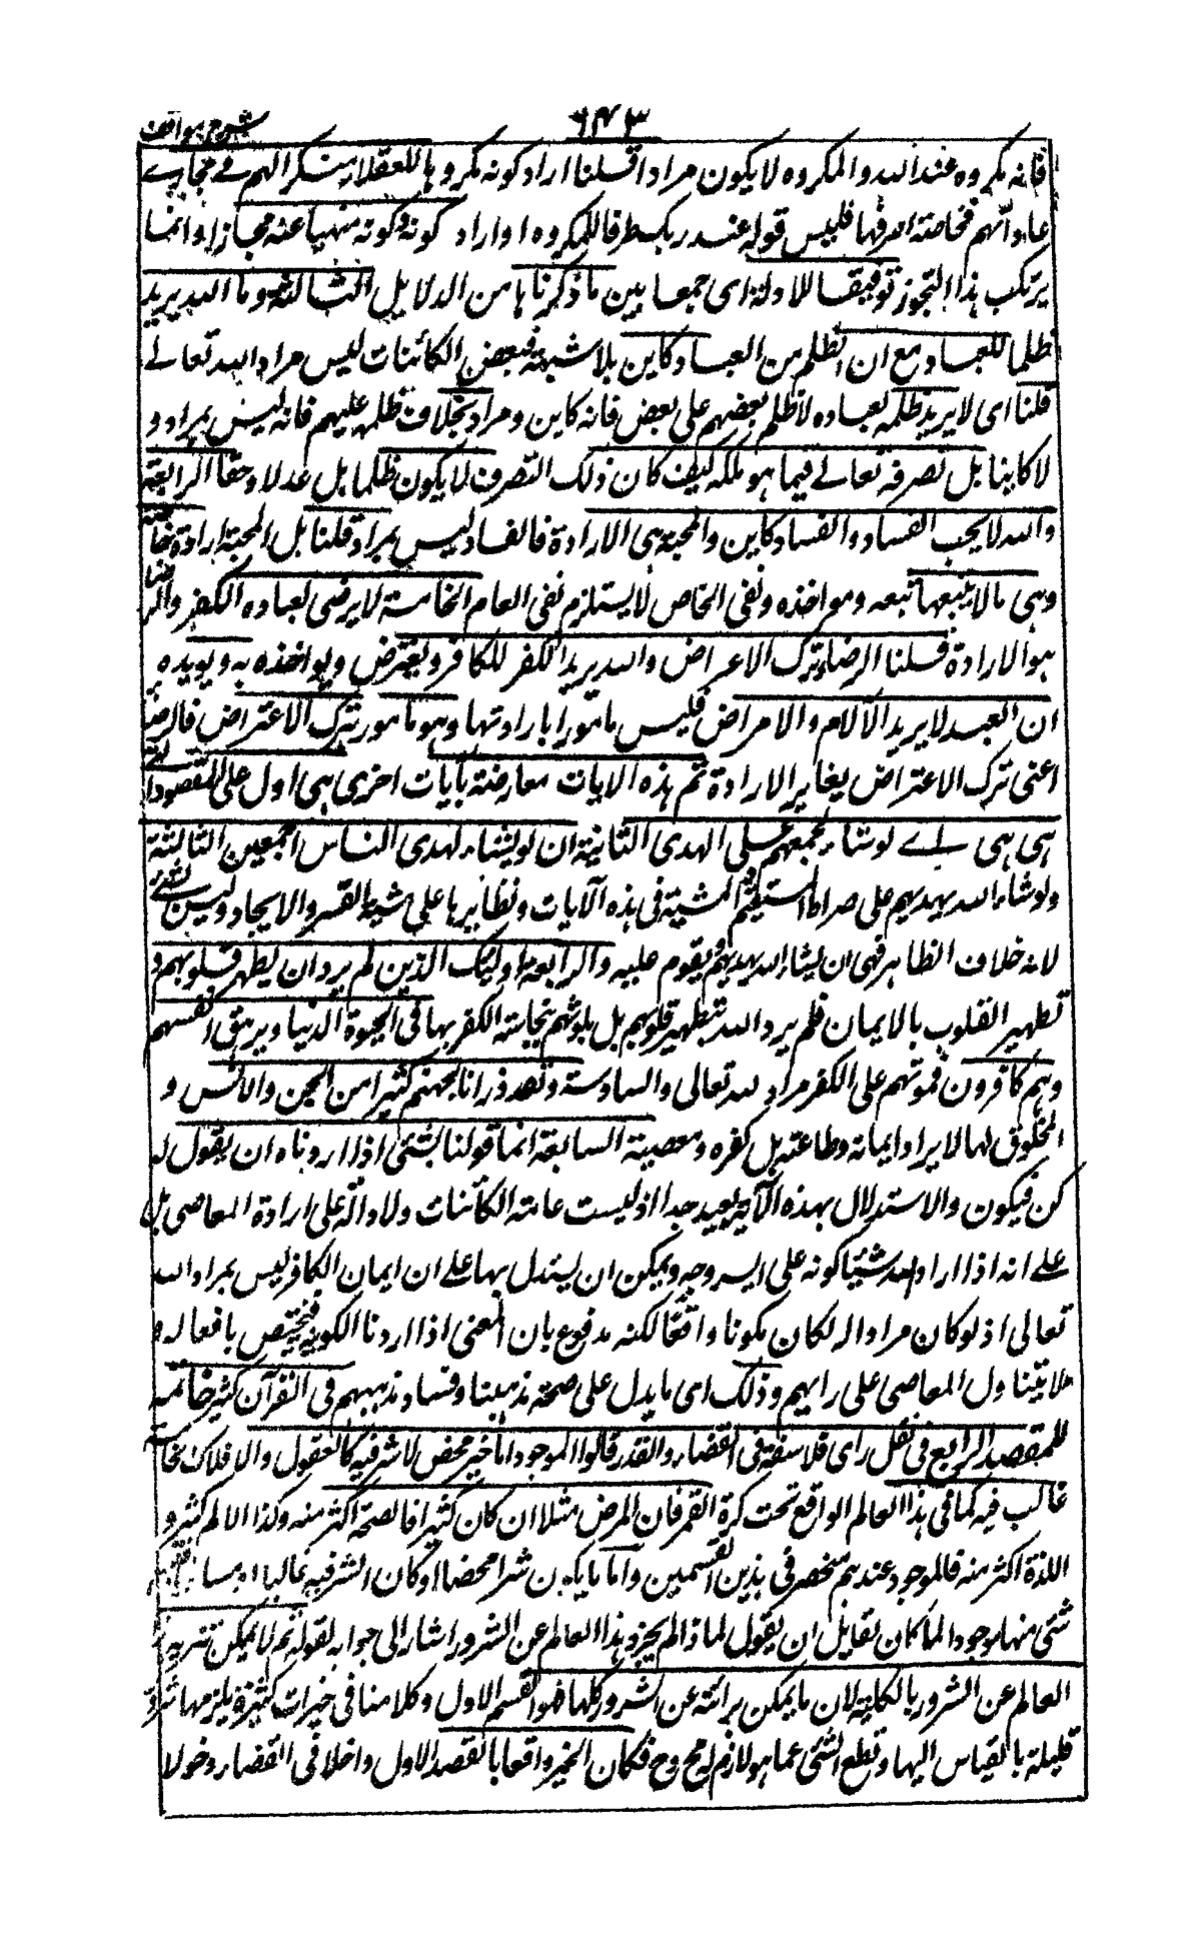 شرح مواقف
٦٤٣
فانه مكروه عند الله والمكروه لا يكون مرادا قلنا اراد كونه مكروها للعقلاء منكرا لهم في مجاري
عاداتهم فليس قوله عند ربك ظرفا لمكروه او اراد كونه منهيا عنه مجازا وانما
يرتكب هذا التجوز توفيقا للادلة اى جمعا بين ما ذكرناها من الدلايل الثالثة وما الله يريد
ظلما للعباد مع ان الظلم من العباد كاين بلا شبهة فبعض الكائنات ليس مراد الله تعالى
قلنا اى لا يريد ظلمه لعباده لا ظلم بعضهم على بعض فانه كاين ومراد بخلاف ظلمه عليهم فانه ليس بمراد و
لا كاينا بل تصرفه تعالى فيما هو ملكه كيف كان ذلك التصرف لا يكون ظلما بل عدلا وحقا الرابعة
والله لا يحب الفساد والفساد كاين والمحبة هى الارادة فالفساد ليس بمراد قلنا بل المحبة ارادة خاصة
وهى ما لا يتبعها تبعه ومواخذه ونفى الخاص لا يستلزم نفى العام الخامسة لا يرضى لعباده الكفر والرضا
هو الارادة قلنا الرضاء ترك الاعتراض والله يريد الكفر للكافر ويعترض ويواخذه به ويويده
ان العبد لا يريد الآلام والامراض فليس مامورا بارادتها وهو مامور بترك الاعتراض فالرضا
اعنى ترك الاعتراض يغاير الارادة ثم هذه الايات معارضة بآيات اخرى هى اول على المقصود
هى هى لو شاء لجمعهم على الهدى الثانية ان لو يشاء لهدى الناس اجمعين الثالثة
ولو شاء الله يهديهم على صراط المشية فى هذه الآيات ونظايرها على مشية القسر والايجاد وليس
لانه خلاف الظاهر والرابعة اولئك الذين لم يرد ان يطهر قلوبهم و
تطهير القلوب بالايمان فلم يرد الله تطهير قلوبهم بل بلوثهم بنجاسة الكفر بها فى الحيوة الدنيا ويزهق انفسهم
وهم كافرون فموتهم على الكفر مراد لله تعالى والسادسة ولقد ذرانا لجهنم كثيرا من الجن والانس و
المخلوق لها لا يراد ايمانه وطاعته بل كفره ومعصيته السابعة انما قولنا لشئ اذا اردناه ان يقول له
كن فيكون والاستدلال بهذه الآية بعيد جدا اذ ليست عامة الكائنات ولا دالة على ارادة المعاصى بل
على انه اذا اراد الله شيئا كونه على ايسر وجه ويمكن ان يستدل بها على ان ايمان الكافر ليس بمراد الله
تعالى اذ لو كان مرادا له لكان مكونا واقعا لكنه مدفوع بان المعنى اذا اردنا تكوينه فيختص بافعاله و
لا يتناول المعاصى على رايهم وذلك اى ما يدل على صحة مذهبنا وفساد مذهبهم فى القرآن كثير خاتمة
للمقصد الرابع فى نقل راى فلاسفة فى القضاء والقدر قالوا الموجود اما خير محض لا شر فيه كالعقول والافلاك
غالب فيه كما فى هذا العالم الواقع تحت كرة القمر فان المرض مثلا ان كان كثيرا فالصحة اكثر منه وكذا الالم كثير و
اللذة اكثر منه فالموجود عندهم منحصر فى هذين القسمين واما ما يكون شرا محضا او كان الشر فيه غالبا او مساويا
شئ منها موجودا لما كان لقايل ان يقول لماذا لم يجرد هذا العالم عن الشرور اشار الى جوابه بقوله ثم لا يمكن تنزيه
العالم عن الشرور بالكلية لان ما يمكن برائته عن الشرور كلها فهو القسم الاول وكلامنا فى خيرات كثيرة يلزمها شرور
قليلة بالقياس اليها وقطع الشئ عما هو لازم له مح وح فكان الخير واقعا بالقصد الاول داخلا فى القضاء دخولا